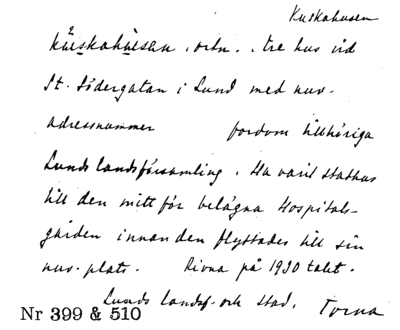 Kuskahusen
kuskahusen, ortn., tre hus vid
St. Södergatan i Lund med nuv.
adressnummer fordom tillhöriga
Lunds landsförsamling. Ha varit stathus
till den mitt för belägna Hospitals-
gården innan den flyttades till sin
nuv. plats. Rivna på 1930 talet.
Lunds landsf. och stad. Torna
Nr 399 & 510